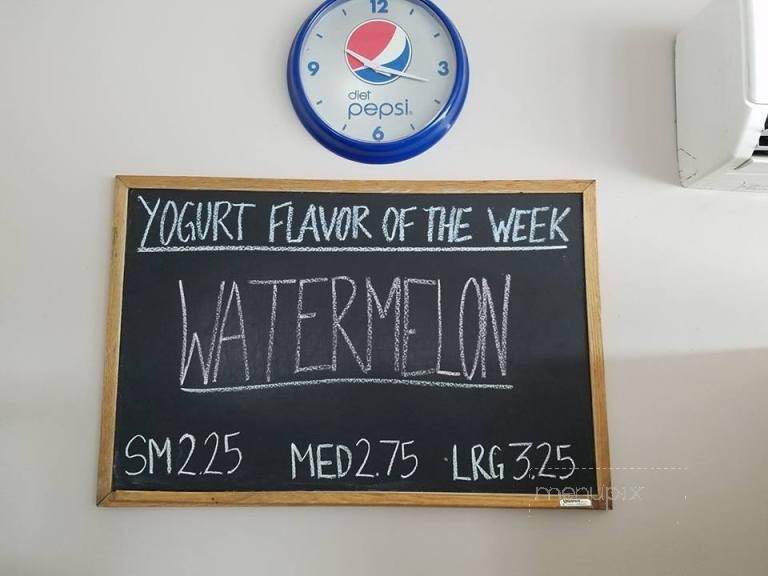 12
9 3
diet
pepsi
6
YOGURT FLAVOR OF THE WEEK
WATERMELON
SM 2.25 MED 2.75 LRG 3.25
menupix